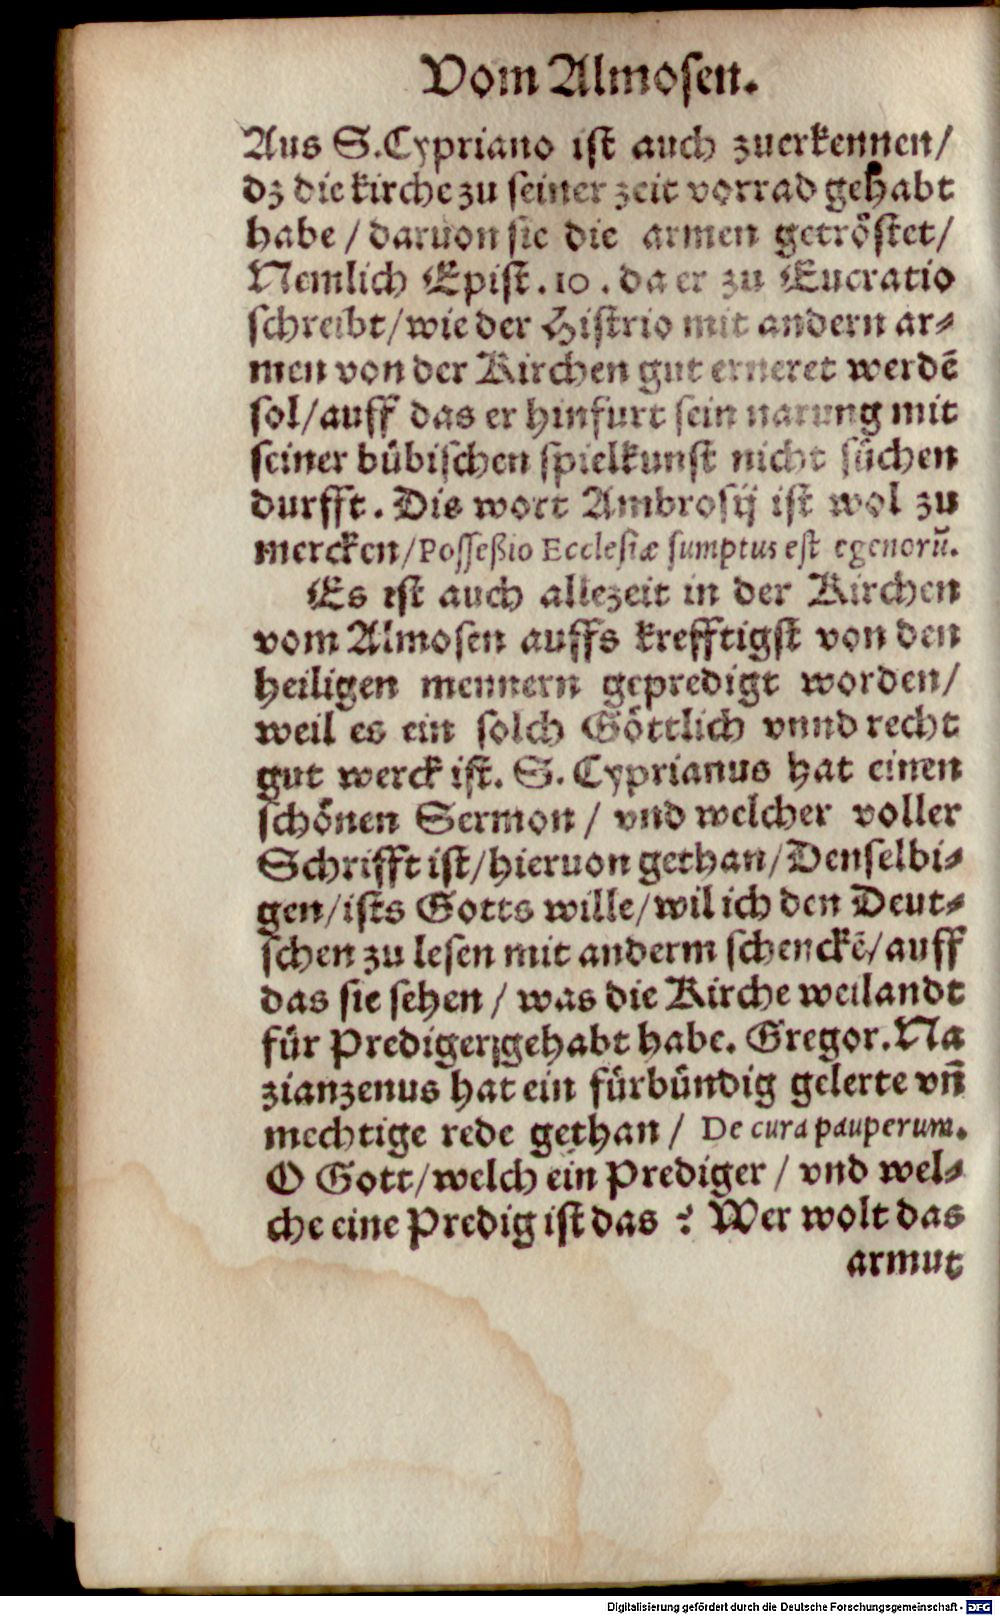 Vom Almosen.
Aus S. Cypriano ist auch zuerkennen/
dz die kirche zu seiner zeit vorrad gehabt
habe / daruon sie die armen getröstet/
Nemlich Epist. 10. da er zu Eucratio
schreibt/wie der Histrio mit andern ar-
men von der Kirchen gut erneret werdē
sol/auff das er hinfurt sein narung mit
seiner bübischen spielkunst nicht sůchen
durfft. Dis wort Ambrosij ist wol zu
mercken/Possessio Ecclesiæ sumptus est egenorū.
Es ist auch allezeit in der Kirchen
vom Almosen auffs krefftigst von den
heiligen mennern gepredigt worden/
weil es ein solch Göttlich vnnd recht
gut werck ist. S. Cyprianus hat einen
schönen Sermon / vnd welcher voller
Schrifft ist/hieruon gethan/Denselbi-
gen/ists Gotts wille/wil ich den Deut-
schen zu lesen mit anderm schenckē/auff
das sie sehen / was die Kirche weilandt
für Prediger gehabt habe. Gregor. Na
zianzenus hat ein fürbündig gelerte vñ
mechtige rede gethan / De cura pauperum.
O Gott/welch ein Prediger / vnd wel-
che eine Predig ist das ? Wer wolt das
armut
Digitalisierung gefördert durch die Deutsche Forschungsgemeinschaft - DFG